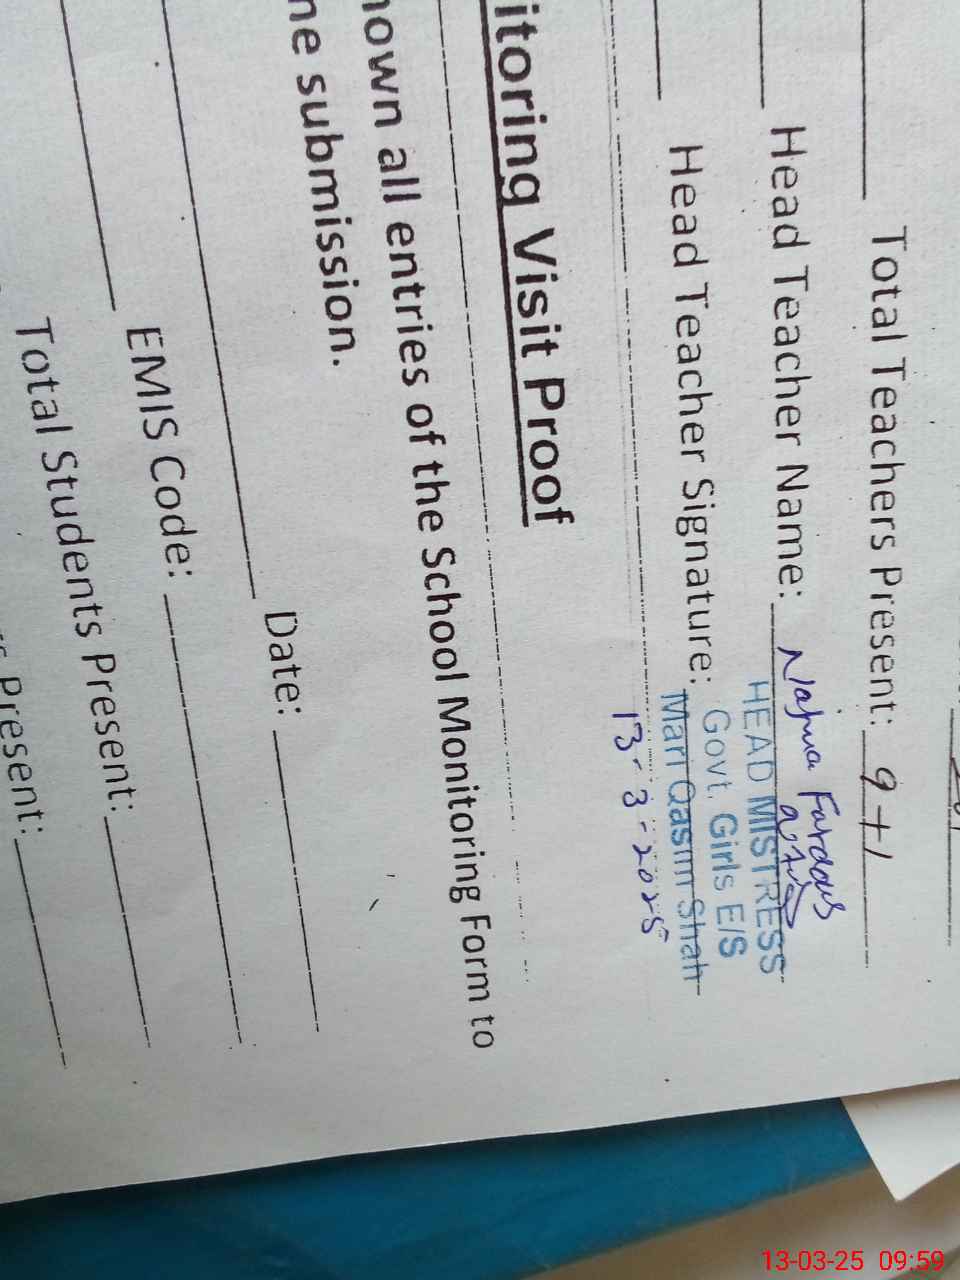 Total Teachers Present: 9+1
Head Teacher Name: Najma Fardous
HEAD MISTRESS
Govt. Girls E/S
Head Teacher Signature: Mari Qasim Shah
13-3-2025
itoring Visit Proof
own all entries of the School Monitoring Form to
ne submission.
Date:
EMIS Code:
Total Students Present:
Present:
13-03-25 09:59